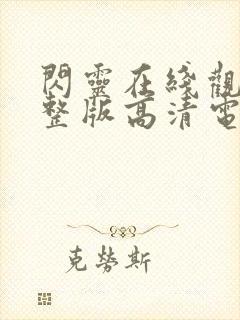 閃靈在綫觀
整版高清電
克勞斯